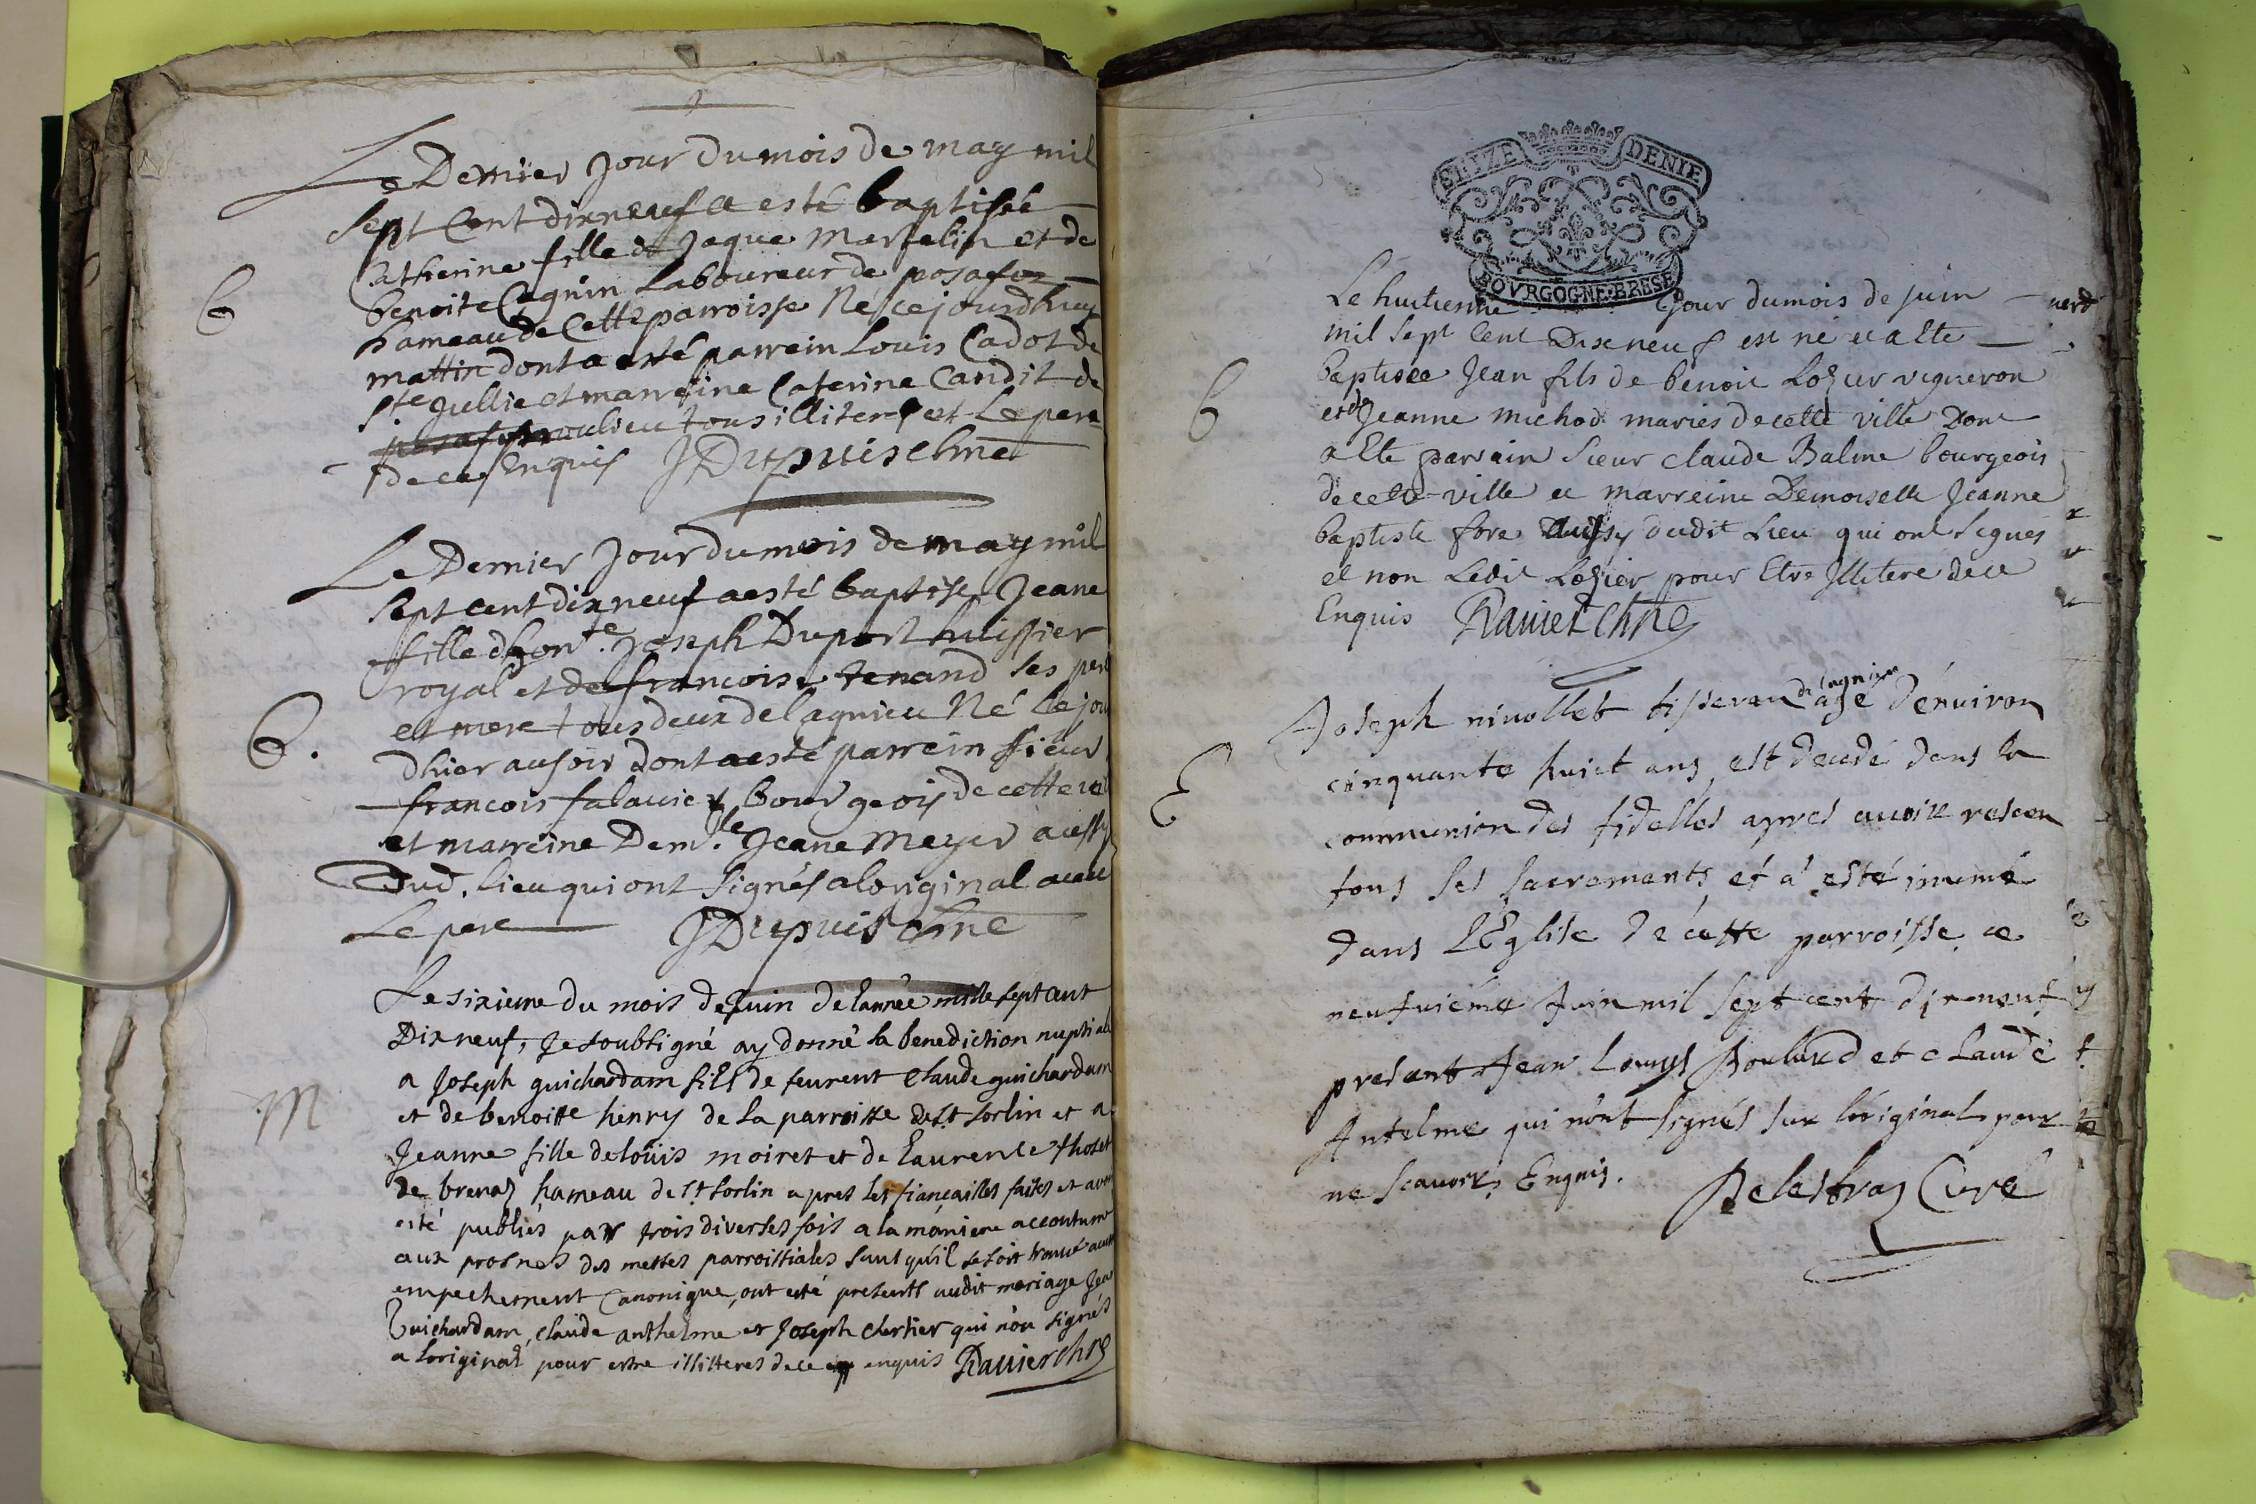 Le Dernier Jour du mois de may mil
sept Cent dixneuf a esté baptisée
Catherine fille de Jaque Marselin et de
benoite Cagnin Laboureur de posafon
hameau de Cette parroisse Ne ce jourdhuy
mattin dont a esté parrein Louis Cadot de
Ste Jullie et marreine Caterine Candit de
tous illiters et Le pere
de ces Enquis JDupuis chne
B
Le Dernier Jour du mois de may mil
sept cent dix neuf a esté baptisée Jeane
fille dhonte. Joseph Duport huissier
royal et de francoise tenand ses pere
et mere tous deux de lagnieu Né le jour
dhier au soir dont a esté parrein sieur
francois falavier bourgeois de cette
et marreine Demle. Jeane Meyer aussy
dud. lieu qui ont signés a loriginal avec
Le pere JDupuis chne
B.
Le sixieme du mois de Juin de lannée mille sept cent
Dixneuf, Je soubsigné ay donné la benediction nuptiale
a Joseph guichardam fils de feurent Claude guichardam
et de benoitte henry de la parroisse de St sorlin et a
Jeanne fille de loüis moiret et de laurence thoset
de brenaz hameau de St sorlin apres les fiançailles faites et avoir
esté publiés par trois diverses fois a la maniere accoutumé
aux prosnes des messes parroissiales sans qu'il se soit trouvé aucun
empechement Canonique, ont esté presents audit mariage Jean
Guichardam, Claude anthelme et Joseph Chertier qui n'on signés
a loriginal pour estre illitteres de ce enquis Ravier chne
M
SEIZE DENIE
BOVRGOGNE·BRESSE
Le huitieme Jour du mois de juin
mil sept Cent Dixneuf est né et a Ete
baptisee Jean fils de benoit Lozier vigneron
et de Jeanne michod mariés de cette ville Dont
a Ete parrain Sieur Claude Balme bourgeois
de cette ville et marreine Demoiselle Jeanne
baptiste fore Aussy dudit Lieu qui ont signés
et non Ledit Lozier pour Etre Illitere de ce
Enquis Ravier Chne
B
Joseph nivollet tisserand de lagnieu agé dénviron
cinquante huict ans est decedé dans la
communion des fidelles apres avoire resceu
tous ses sacremants et a esté inumé
dans l'Eglise de cette parroisse ce
neufuiéme Juin mil sept cent dixneuf
presant Jean Louys et Claude
Antelme qui n'ont signés sur l'original pour
ne scavoir, Enquis. Delestraz Curé
E